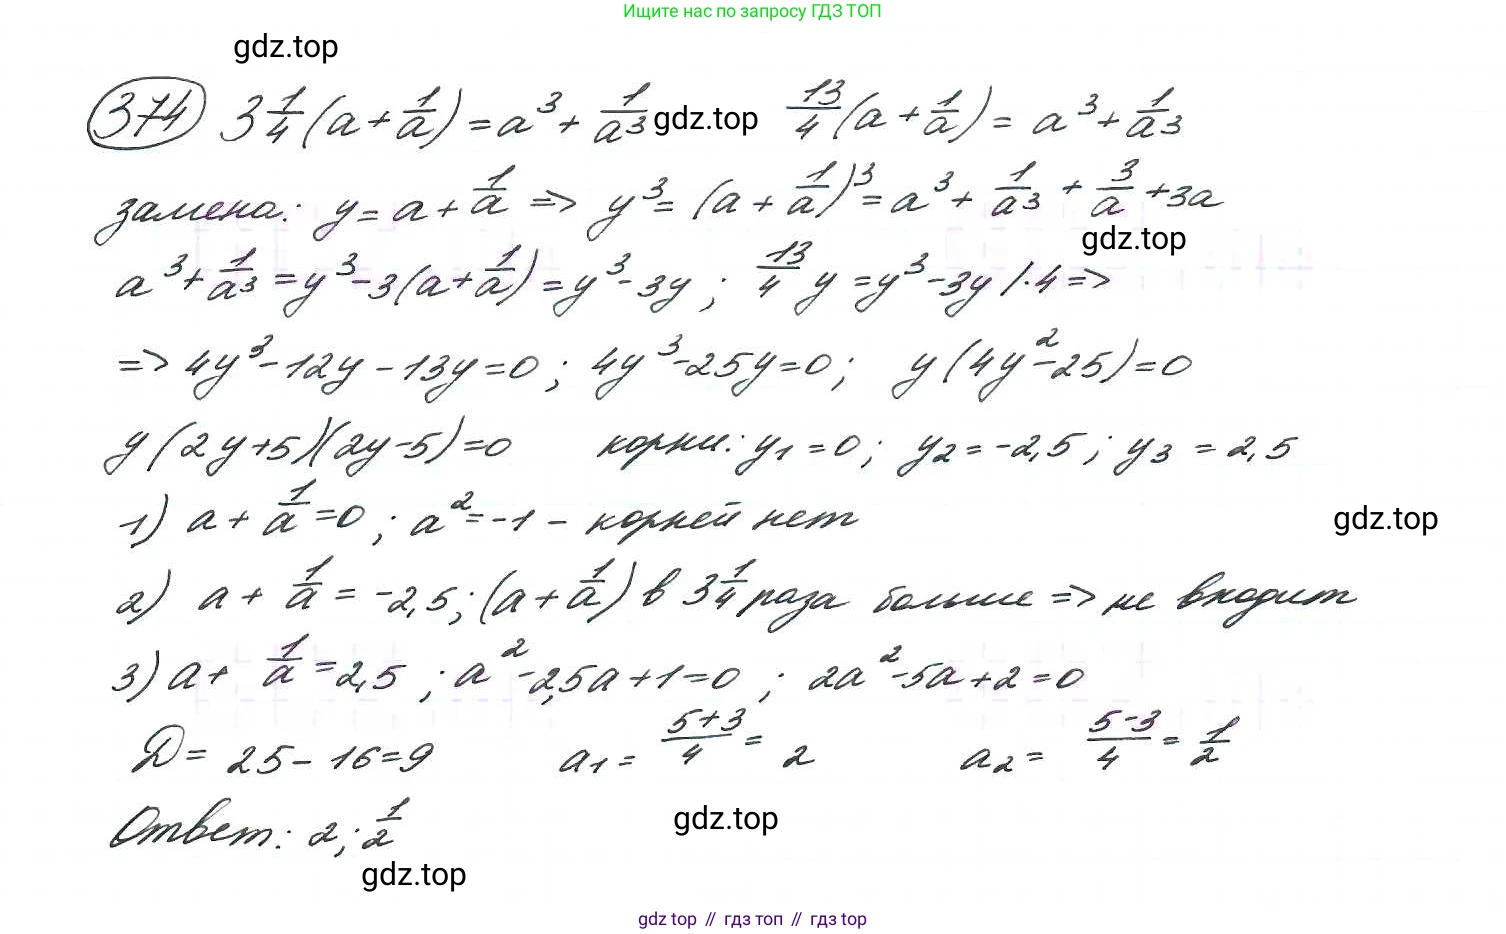 Ищите нас по запросу ГДЗ ТОП
gdz.top
374 3 1/4 (a + 1/a) = a³ + 1/a³ gdz.top 13/4 (a + 1/a) = a³ + 1/a³
замена: y = a + 1/a => y³ = (a + 1/a)³ = a³ + 1/a³ + 3/a + 3a
gdz.top
a³ + 1/a³ = y³ - 3(a + 1/a) = y³ - 3y ; 13/4 y = y³ - 3y /·4 =>
=> 4y³ - 12y - 13y = 0 ; 4y³ - 25y = 0 ; y(4y² - 25) = 0
y(2y+5)(2y-5) = 0 корни: y₁ = 0 ; y₂ = -2,5 ; y₃ = 2,5
1) a + 1/a = 0 ; a² = -1 - корней нет
gdz.top
2) a + 1/a = -2,5 ; (a + 1/a) в 3 1/4 раза больше => не входит
3) a + 1/a = 2,5 ; a² - 2,5a + 1 = 0 ; 2a² - 5a + 2 = 0
D = 25 - 16 = 9 a₁ = (5+3)/4 = 2 a₂ = (5-3)/4 = 1/2
Ответ: 2 ; 1/2
gdz.top
gdz.top
gdz top // гдз топ // гдз top